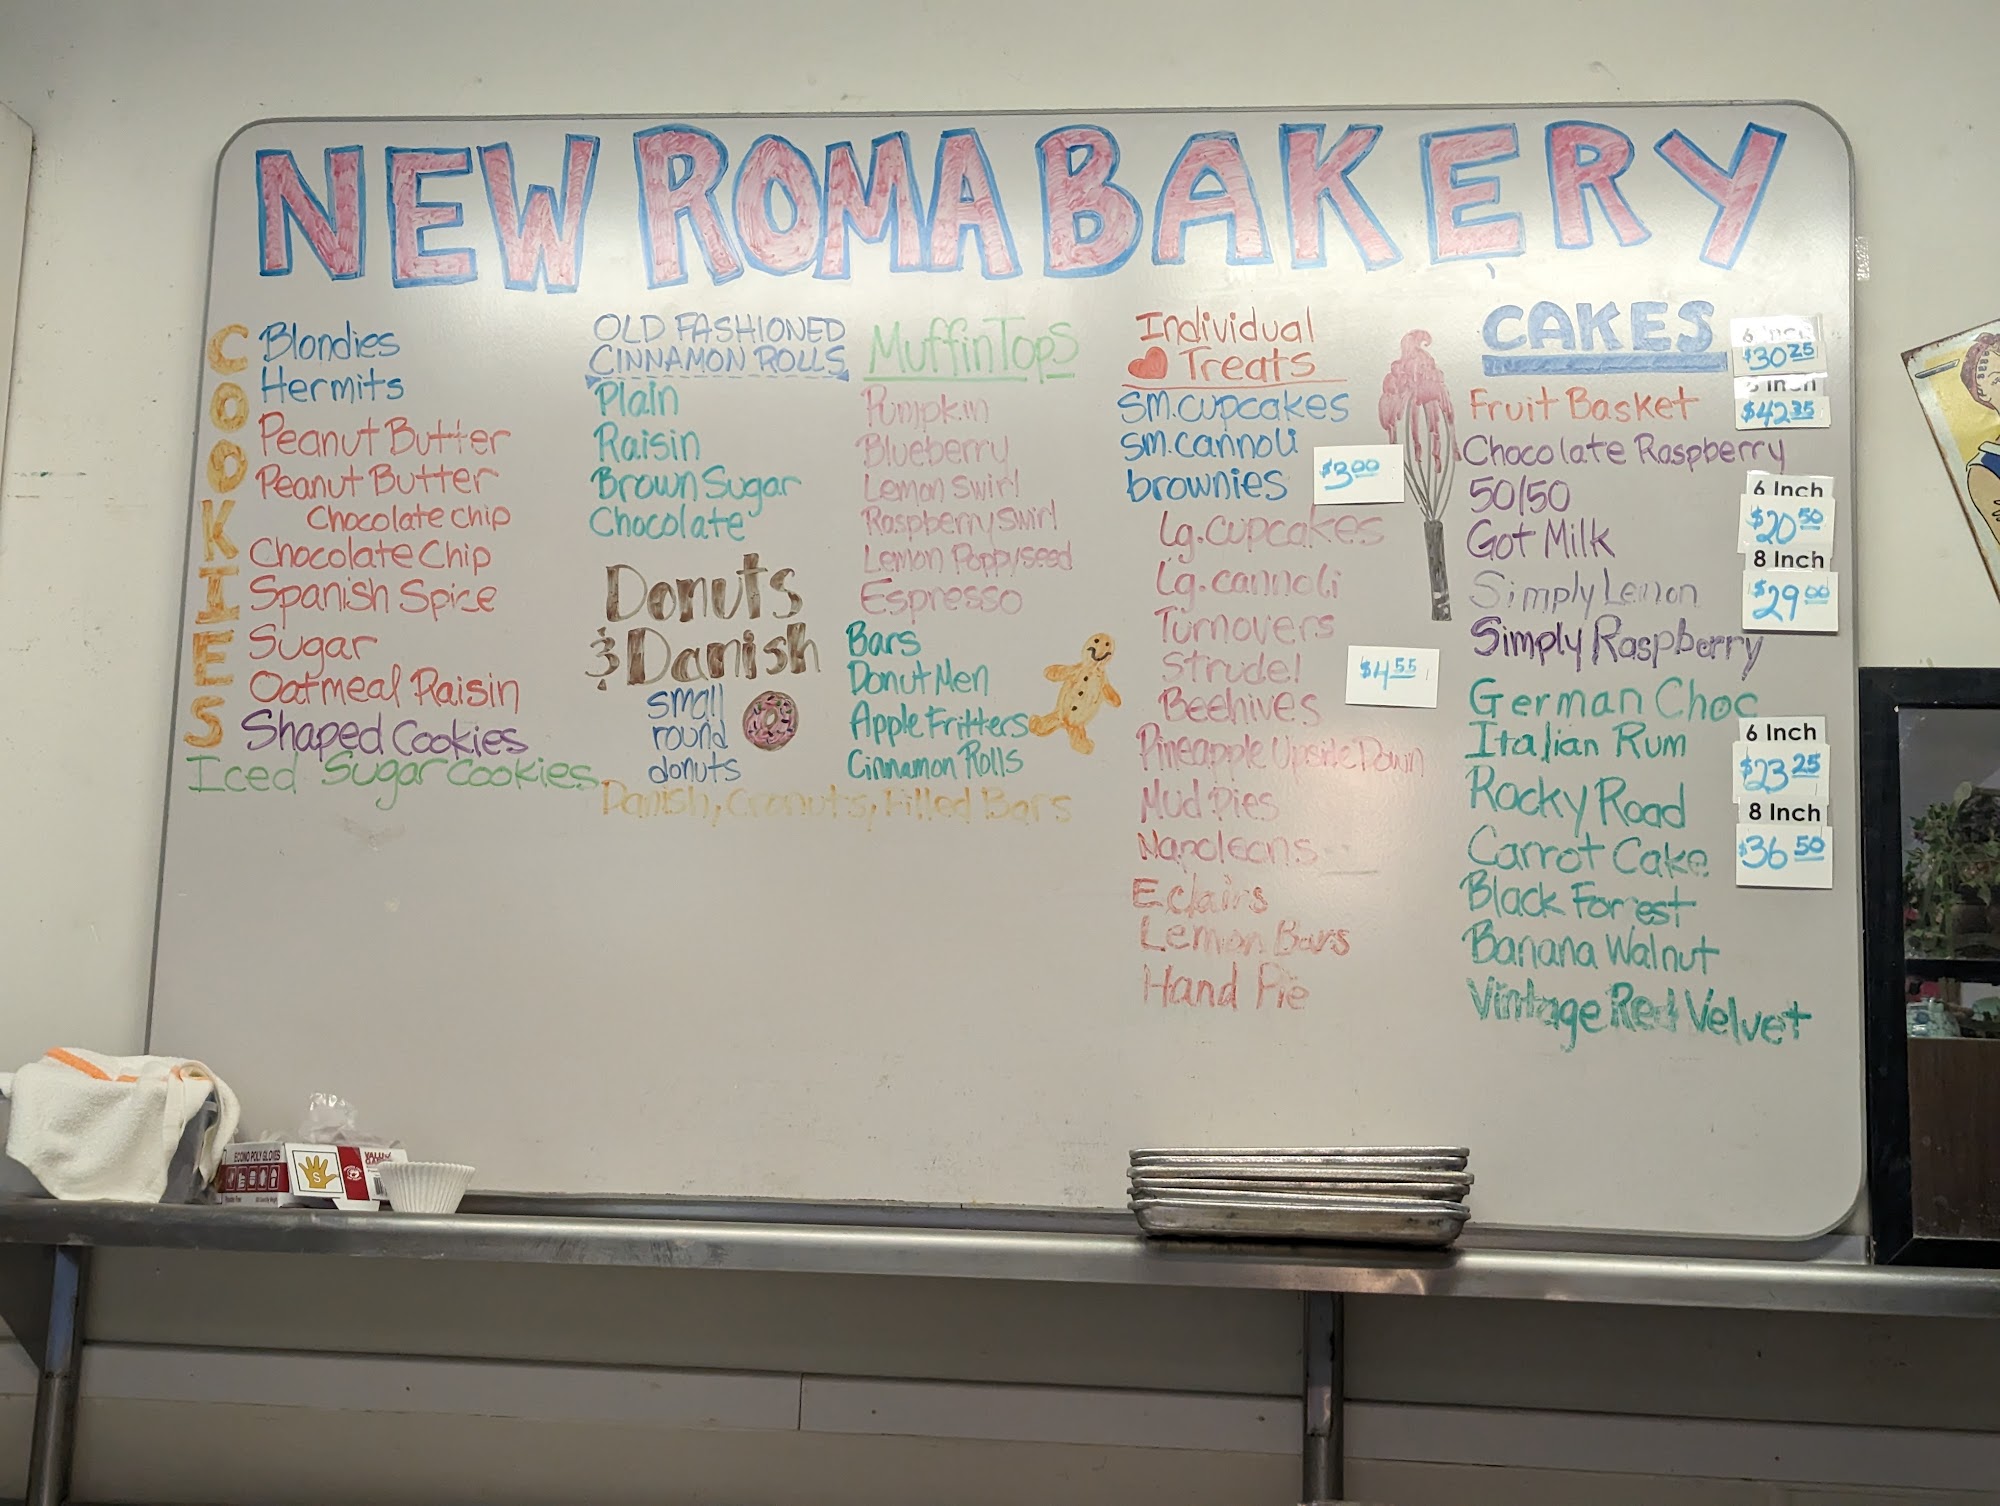 NEW ROMA BAKERY
COOKIES
Blondies
Hermits
Peanut Butter
Peanut Butter
Chocolate chip
Chocolate Chip
Spanish Spice
Sugar
Oatmeal Raisin
Shaped Cookies
Iced Sugar Cookies
OLD FASHIONED
CINNAMON ROLLS
Plain
Raisin
Brown Sugar
Chocolate
Donuts
& Danish
small
round
donuts
Danish, Cronuts, Filled Bars
Muffin Tops
Pumpkin
Blueberry
Lemon Swirl
Raspberry Swirl
Lemon Poppyseed
Espresso
Bars
Donut Men
Apple Fritters
Cinnamon Rolls
Individual
Treats
sm. cupcakes
sm. cannoli
brownies
$3.00
Lg. cupcakes
Lg. cannoli
Turnovers
Strudel
$4.55
Beehives
Pineapple Upside Down
Mud Pies
Napoleons
Eclairs
Lemon Bars
Hand Pie
CAKES
6 Inch
$30 25
Inch
$42 35
Fruit Basket
Chocolate Raspberry
50/50
Got Milk
Simply Lemon
Simply Raspberry
6 Inch
$20 50
8 Inch
$29 00
German Choc
Italian Rum
Rocky Road
Carrot Cake
Black Forrest
Banana Walnut
Vintage Red Velvet
6 Inch
$23 25
8 Inch
$36 50
ECONO POLY GLOVES
S